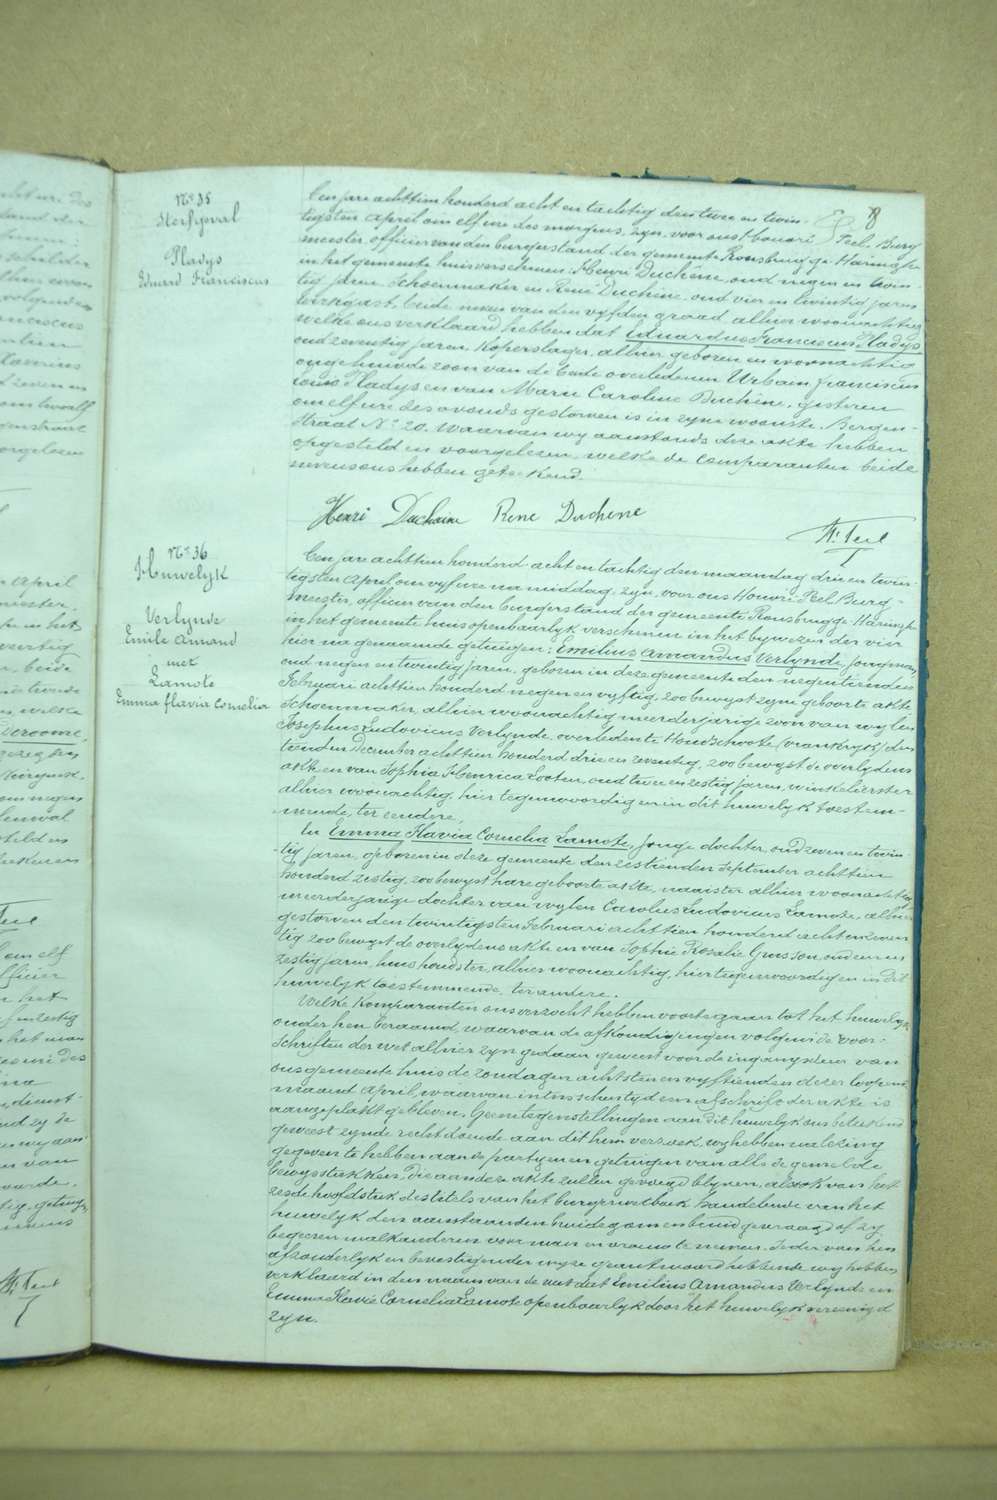 8
N° 35
Sterfgeval
Pladys
Eduard Franciscus
Ten jare achttien honderd acht en tachtig den twee en twin-
tigsten April om elf ure des morgens, zyn voor ons Honoré Peel, Burg
meester, officier van den burgerstand der gemeente Rousbrugge Haringhe
in het gemeente huis verschenen: Henri Duchêne, oud negen en twin-
tig jaren, Schoenmaker en René Duchêne, oud vier en twintig jaren
werkgast, beide neven van den vyfden graad, alhier woonachtig
welke ons verklaard hebben dat Eduardus Franciscus Pladys
oud zeventig jaren, Koperslager, alhier geboren en woonachtig
ongehuwde zoon van de beide overledenen Urbain Franciscus
Louis Pladys en van Marie Caroline Duchêne, gisteren
om elf ure des avonds gestorven is in zyne woonste, Bergen-
straat N° 20. Waarvan wy aanstonds deze akte hebben
opgesteld en voorgelezen, welke de comparanten beide
nevens ons hebben geteekend.
Henri Duchêne René Duchêne
H. Peel
N° 36
Huwelyk
Verlynde
Emile Amand
met
Lamote
Emma Flavia Cornelia
Ten jare achttien honderd acht en tachtig den maandag drie en twin-
tigsten April om vyf ure na middag, zyn voor ons Honoré Peel, Burg-
meester, officier van den burgerstand der gemeente Rousbrugge Haringhe
in het gemeente huis openbaarlyk verschenen in het bywezen der vier
hier na genaamde getuigen: Emilius Amandus Verlynde, jongman,
oud negen en twintig jaren, geboren in deze gemeente den negentienden
Februari achttien honderd negen en vyftig, zoo bewyst zyne geboorte akte
Schoenmaker, alhier woonachtig meerderjarige zoon van wylen
Josephus Ludovicus Verlynde, overleden te Hondschoote (Vrankryk) den
tienden December achttien honderd drie en zeventig, zoo bewyst de overlydens
akte en van Sophia Henrica Looten, oud twee en zestig jaren, winkelierster
alhier woonachtig, hier tegenwoordig en in dit huwelyk toestem-
mende, ter eendere;
En Emma Flavia Cornelia Lamote, jonge dochter, oud zeven en twin-
tig jaren, geboren in deze gemeente den zestienden September achttien
honderd zestig, zoo bewyst hare geboorte akte, naaister alhier woonachtig
meerderjarige dochter van wylen Carolus Ludovicus Lamote, alhier
gestorven den twintigsten Februari achttien honderd acht en zeven
tig zoo bewyst de overlydens akte en van Sophie Rosalie Gursson, oud een en
zestig jaren, huishoudster, alhier woonachtig, hier tegenwoordig en in dit
huwelyk toestemmende, ter andere.
Welke Komparanten ons verzocht hebben voorts gaan tot het huwelyk
onder hen beraamd, waarvan de afkondigingen volgens de voor-
schriften der wet alhier zyn gedaan geweest voor de ingangsdeur van
ons gemeente huis de zondagen achtsten en vyftienden dezer loopende
maand April, waarvan intusschentyd een afschrift der akte is
aangeplakt gebleven. Geene tegenstellingen aan dit huwelyk ons beteekend
geweest zynde recht doende aan dit hun verzoek, wy hebben na lezing
gegeven te hebben aan de partyen en getuigen van alle de gemelde
bewysstukken, die aan deze akte zullen gevoegd blyven, alsook van het
zesde hoofdstuk des titels van het burgerwetboek handelende van het
huwelyk den aanstaanden bruidegom en bruid gevraagd of zy
begeeren malkanderen voor man en vrouw te nemen. Ieder van hen
afzonderlyk en bevestigender wyze geantwoord hebbende wy hebben
verklaard in den naam van de wet dat Emilius Amandus Verlynde en
Emma Flavie Cornelia Lamote openbaarlyk door het huwelyk vereenigd
zyn.